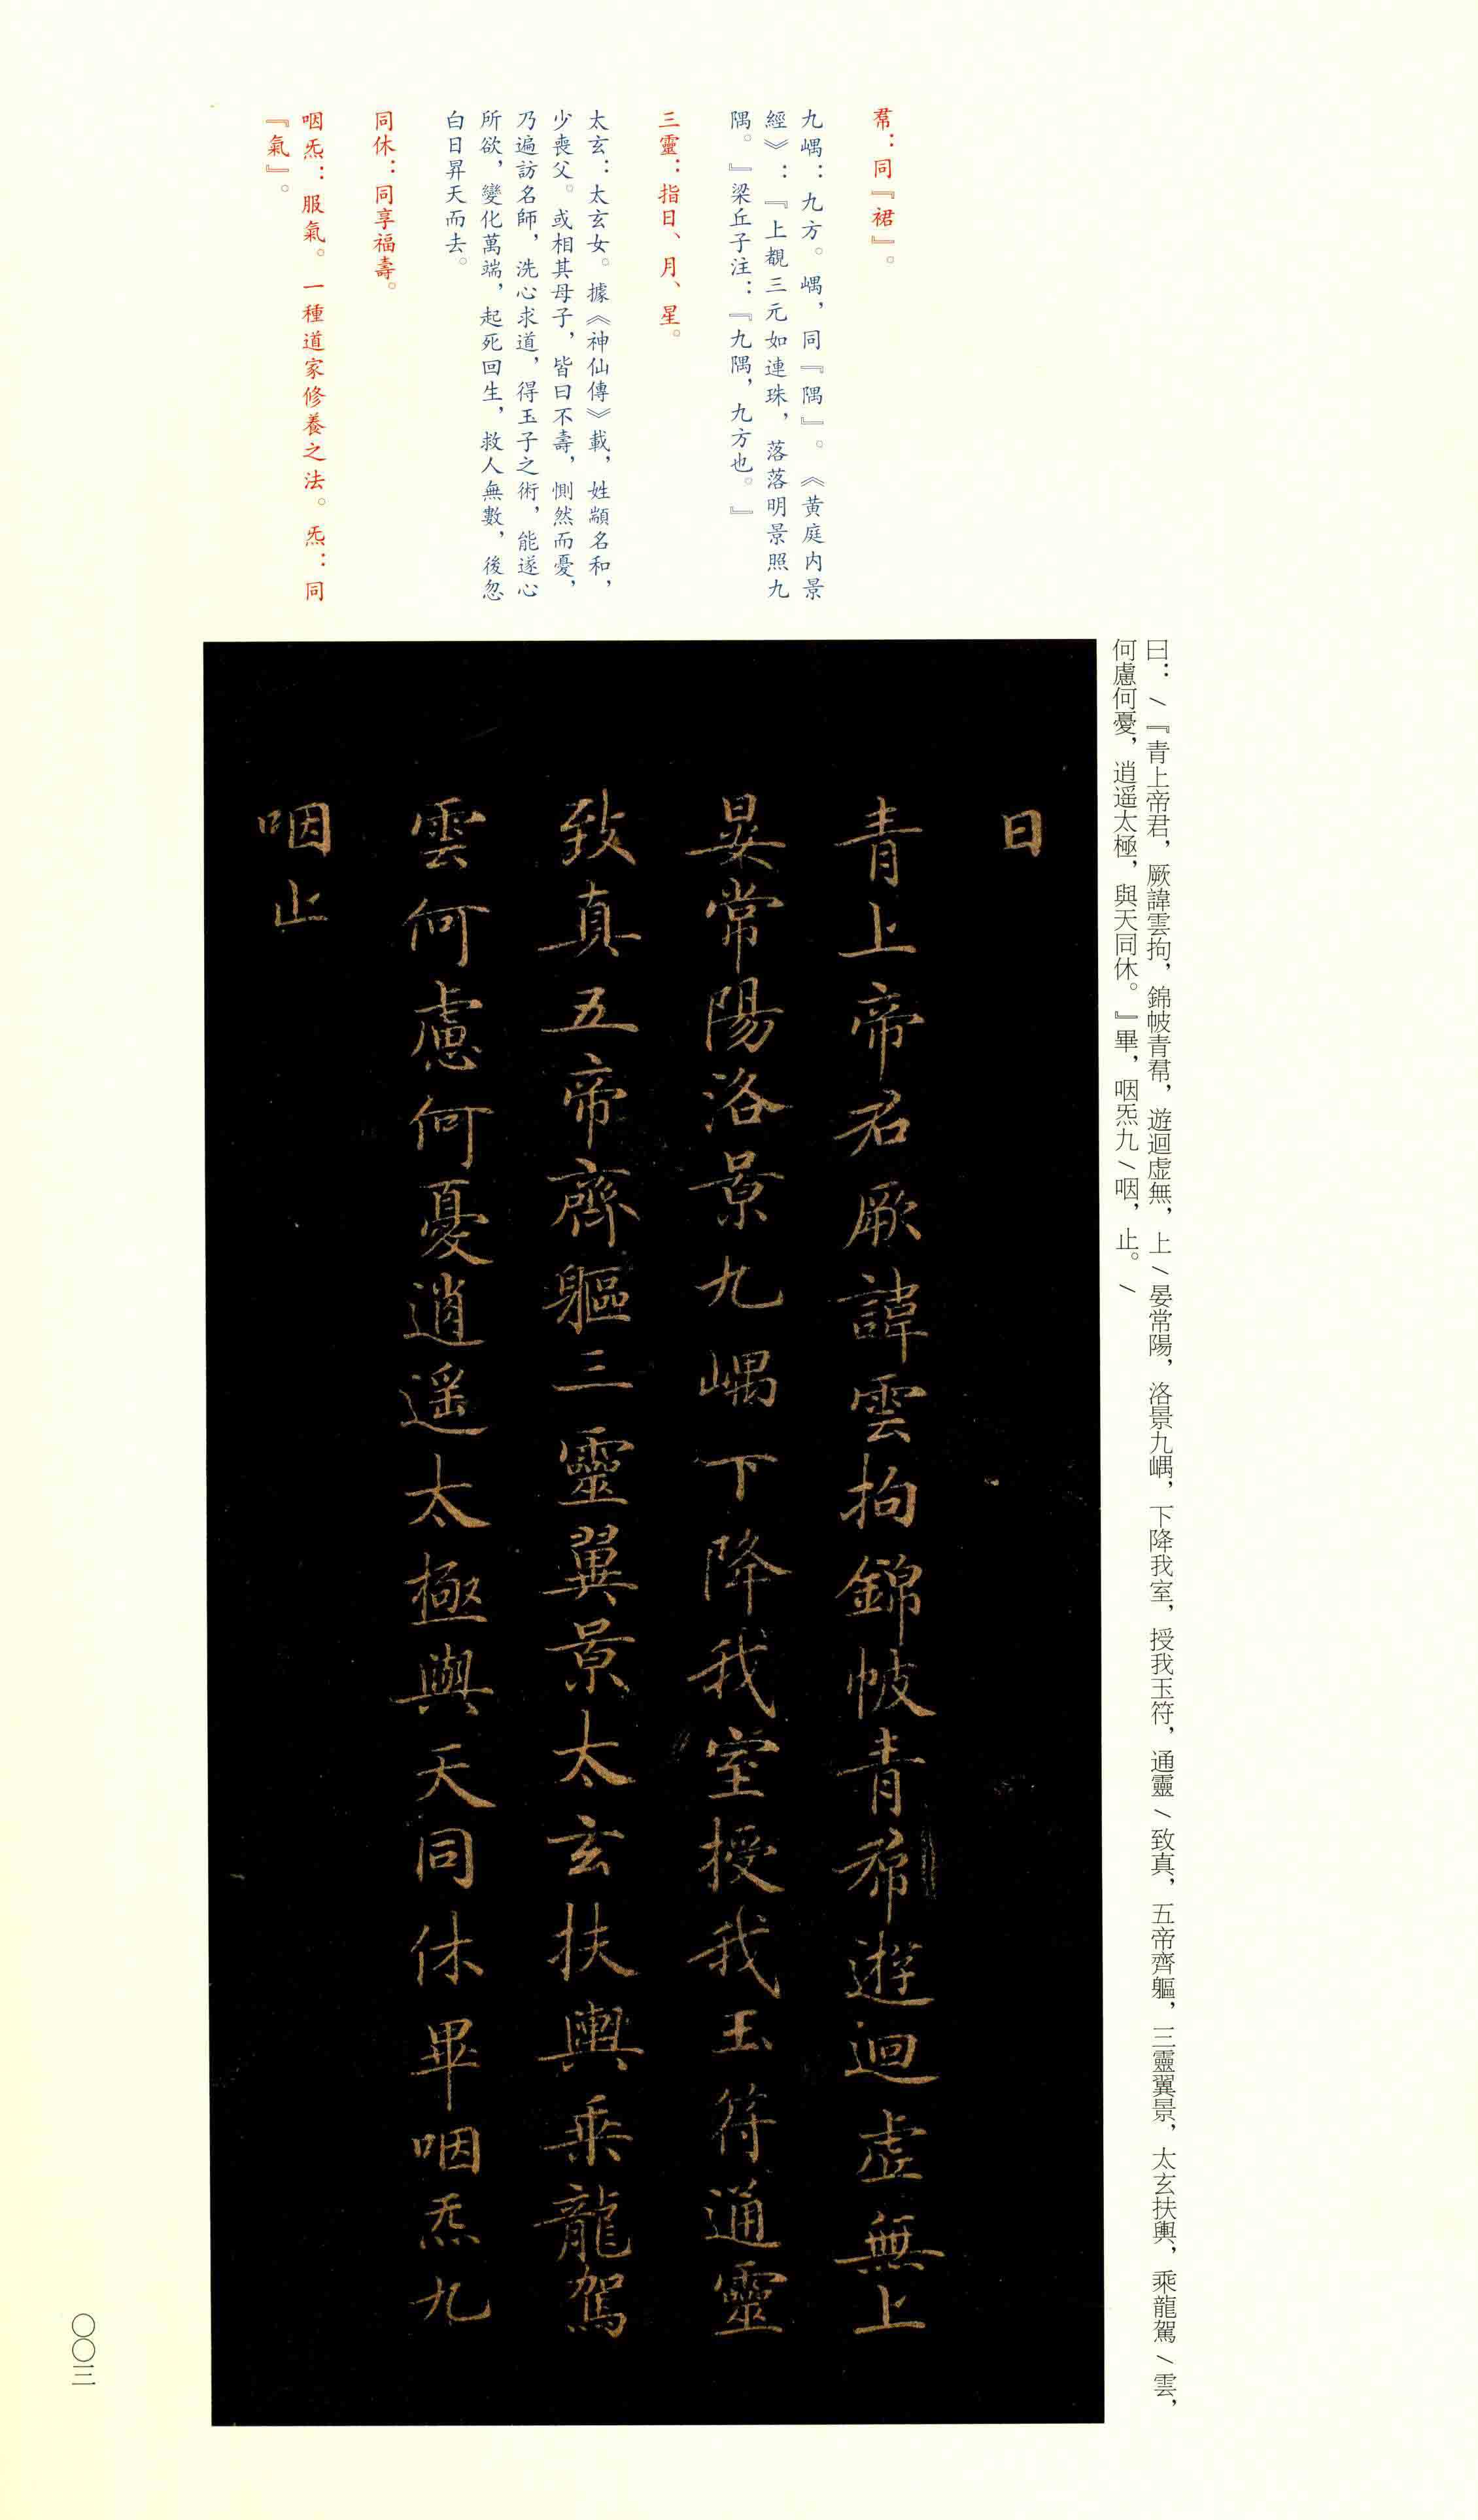 曰：/『青上帝君，厥諱雲拘，錦帔青帬，遊迴虛無，上/晏常陽，洛景九嵎，下降我室，授我玉符，通靈/致真，五帝齊軀，三靈翼景，太玄扶輿，乘龍駕/雲，
何慮何憂，逍遥太極，與天同休。』畢，咽炁九/咽，止。/
帬：同『裙』。
九嵎：九方。嵎，同『隅』。《黄庭内景
經》：『上覩三元如連珠，落落明景照九
隅。』梁丘子注：『九隅，九方也。』
三靈：指日、月、星。
太玄：太玄女。據《神仙傳》載，姓顓名和，
少喪父。或相其母子，皆曰不壽，惻然而憂，
乃遍訪名師，洗心求道，得玉子之術，能遂心
所欲，變化萬端，起死回生，救人無數，後忽
白日昇天而去。
同休：同享福壽。
咽炁：服氣。一種道家修養之法。炁：同
『氣』。
曰
青上帝君厥諱雲拘錦帔青帬遊迴虛無上
晏常陽洛景九嵎下降我室授我玉符通靈
致真五帝齊軀三靈翼景太玄扶輿乘龍駕
雲何慮何憂逍遥太極與天同休畢咽炁九
咽止
〇〇三